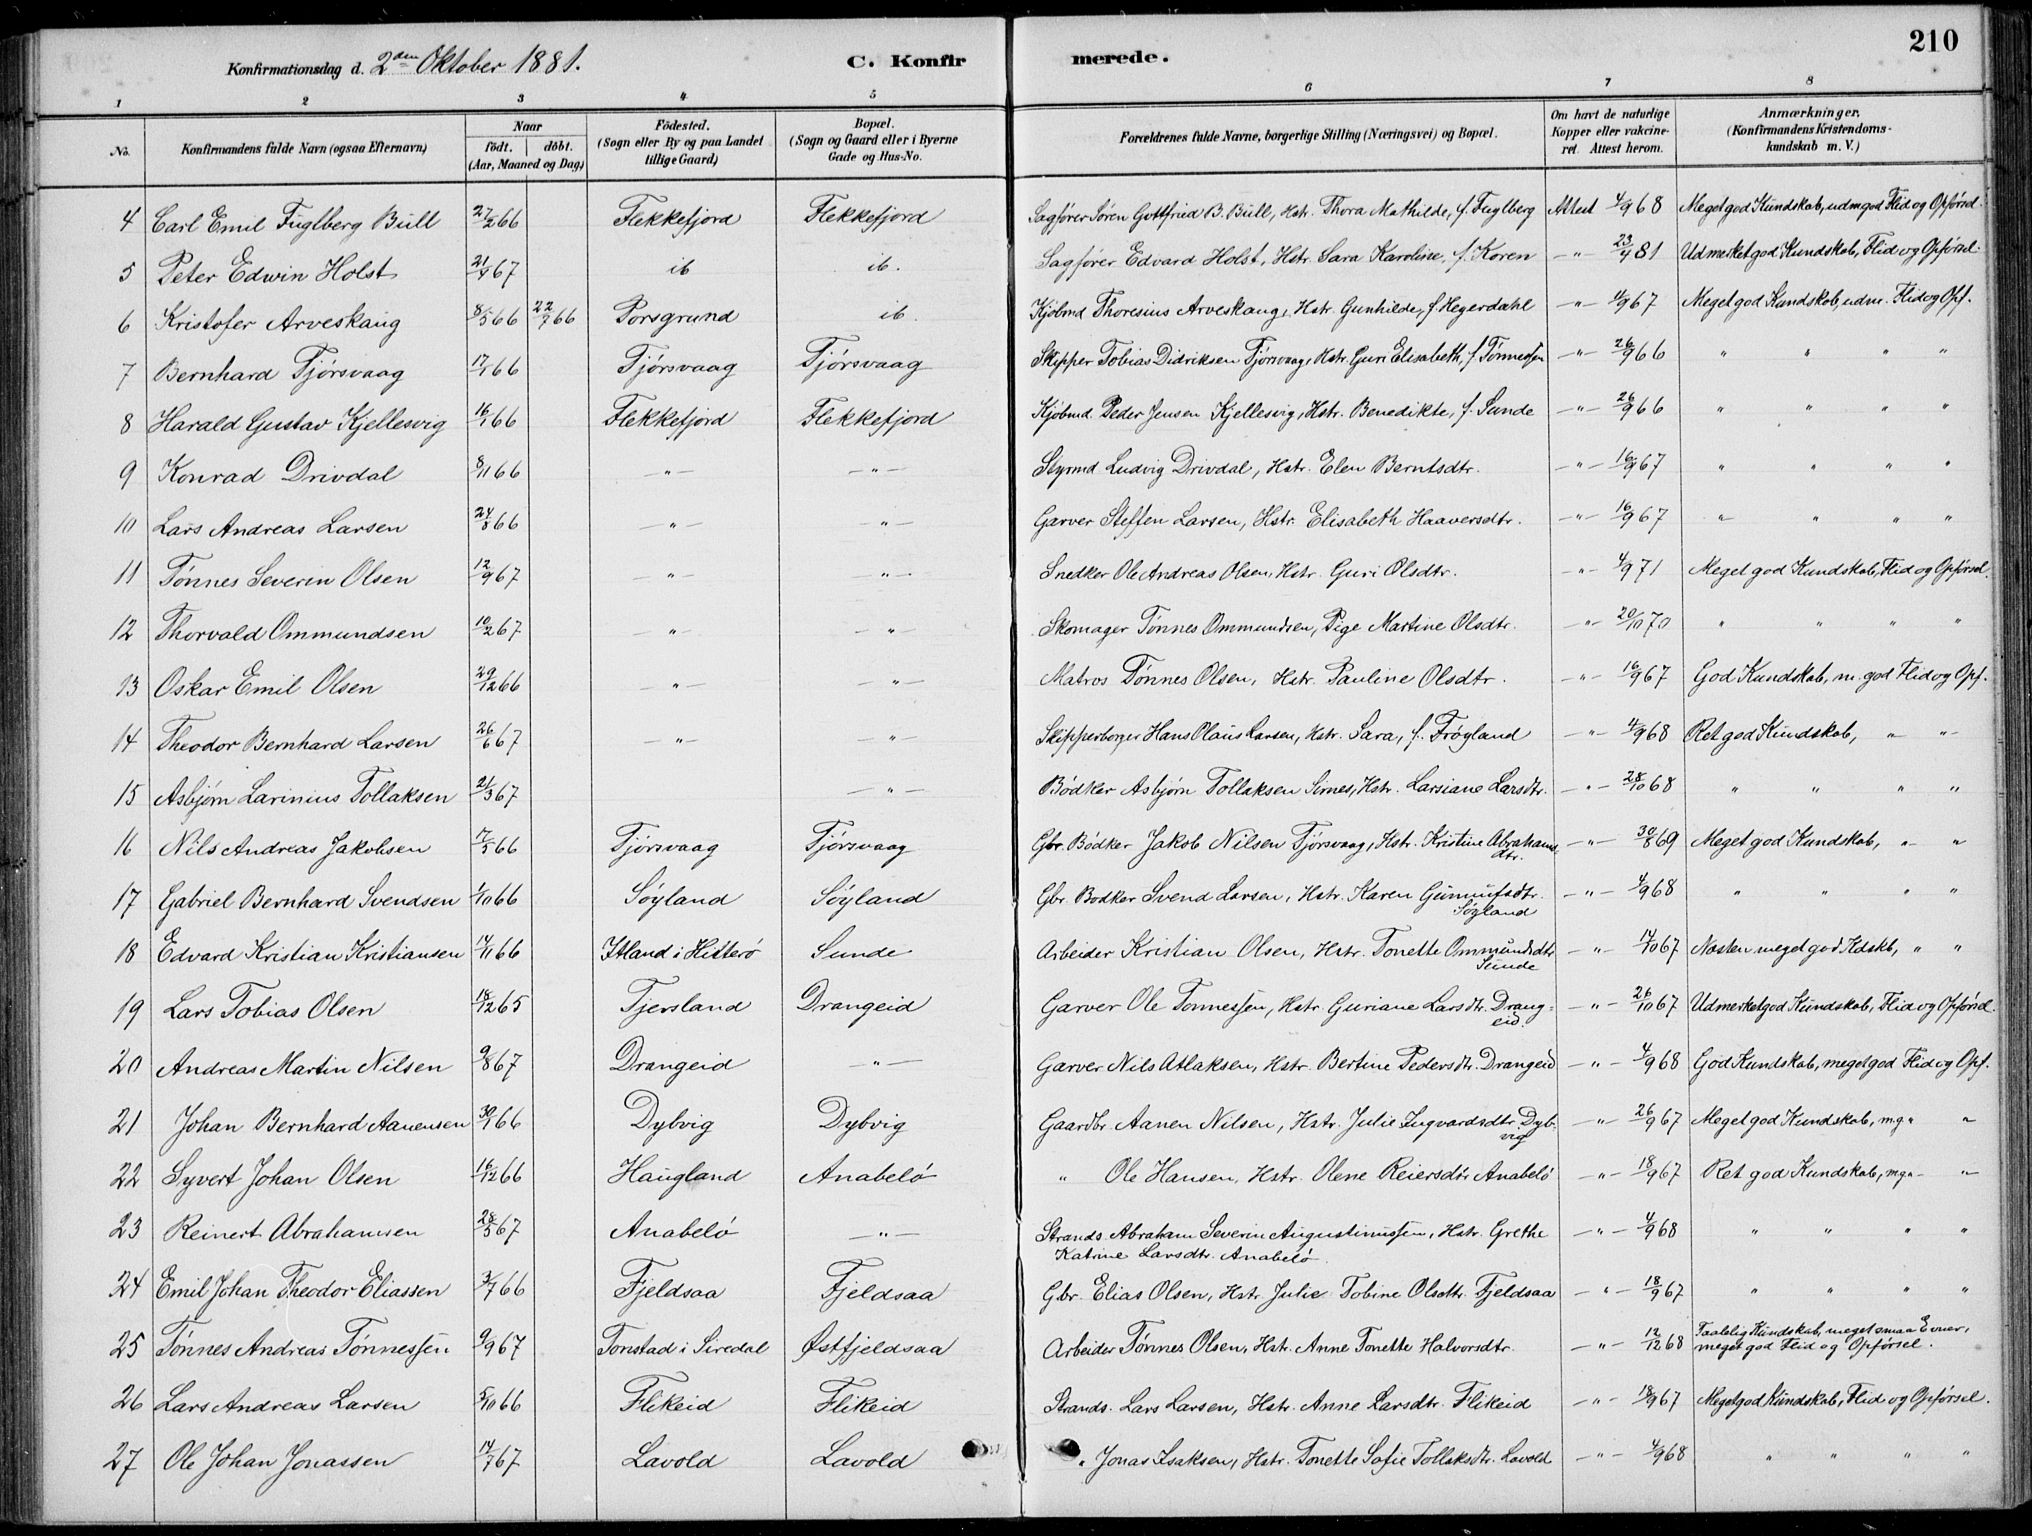 210
Konfirmationsdag d. 2den Oktober 1881. C. Konfirmerede.
1 2 3 4 5 6 7 8
No. Konfirmandens fulde Navn (ogsaa Efternavn) Naar födt. döbt. (Aar, Maaned og Dag) Födested. (Sogn eller By og paa Landet tillige Gaard) Bopæl. (Sogn og Gaard eller i Byerne Gade og Hus-No. Forældrenes fulde Navne, borgerlige Stilling (Næringsvei) og Bopæl. Om havt de naturlige Kopper eller vakcineret. Attest herom. Anmærkninger. (Konfirmandens Kristendomskundskab m. V.)
4 Carl Emil Fuglberg Bull 27/2 66 Flekkefjord Flekkefjord Sagfører Søren Gottfried B. Bull, Hstr. Thora Mathilde, f. Fuglberg Attest 4/9 68 Meget god Kundskab, udm god Flid og Opførsel
5 Peter Edwin Holst 67 ib ib. Sagfører Edvard Holst, Hstr. Sara Karoline, f. Koren —"— 23/4 81 Udmerket god Kundskab, Flid og Opførsel.
6 Kristofer Arveskaug 8/5 66 22/7 66 Porsgrund ib. Kjøbmd Thoresius Arveskaug, Hstr. Gunhilde, f. Hegerdahl " 4/9 67 Meget god Kundskab, udm. Flid og Opf.
7 Bernhard Tjørsvaag 17/1 66 Tjørsvaag Tjørsvaag Skipper Tobias Didriksen Tjørsvaag, Hstr. Guri Elisabeth, f. Tønnessen —"— 26/9 66 " " " "
8 Harald Gustav Kjellesvig 16/1 66 Flekkefjord Flekkefjord Kjöbmd Peder Jensen Kjellesvig, Hstr. Benedikte, f. Sunde —"— 26/9 66 " " " "
9 Konrad Drivdal 8/11 66 —"— —"— Styrmd Ludvig Drivdal, Hstr. Elen Berntsdtr. —"— 16/9 67 " " " "
10 Lars Andreas Larsen 66 —"— "— Garver Steffen Larsen, Hstr. Elisabeth Haaversdtr. —"— 16/9 67 " " " "
11 Tønnes Severin Olsen 12/9 67 —"— "— Snedker Ole Andreas Olsen, Hstr. Guri Olsdtr. —"— 4/9 71 Meget god Kundskab, Flid og Opførsel.
12 Thorvald Ommundsen 10/2 67 —"— —"— Skomager Tønnes Ommundsen, Pige Martine Olsdtr. —"— 20/10 70 " " " "
13 Oskar Emil Olsen 29/12 66 —"— —"— Matros Tønnes Olsen, Hstr. Pauline Olsdtr. —"— 16/9 67 God Kundskab, m. god Flid og Opf.
14 Theodor Bernhard Larsen 26/6 67 —"— —"— Skipperborger Hans Olaus Larsen, Hstr. Sara, f. Frøyland —"— 4/9 68 Ret god Kundskab, " "
15 Asbjørn Larinius Tollaksen 21/3 67 —"— Bødker Asbjørn Tollaksen Sirnes, Hstr. Larsiane Larsdtr. —"— 28/10 68 " " " "
16 Nils Andreas Jakobsen 66 Tjørsvaag Tjørsvaag Gbr. Bødker Jakob Nilsen Tjørsvaag, Hstr. Kristine Abrahamsdtr. —"— 30/8 69 Meget god Kundskab, " "
17 Gabriel Bernhard Svendsen 1/10 66 Söyland Söyland Gbr. Bødker Svend Larsen, Hstr. Karen Gunnufsdtr. Søyland —"— 4/9 68 " " " "
18 Edvard Kristian Kristiansen 14/11 66 Itland i Hitterø Sunde Arbeider Kristian Olsen, Hstr. Tonette Ommundsdtr Sunde —"— 14/10 67 Næsten meget god Kdskb, " "
19 Lars Tobias Olsen 18/12 65 Tjersland Drangeid Garver Ole Tønnessen, Hstr. Guriane Larsdtr. Drangeid. —"— 26/10 67 Udmerket god Kundskab, Flid og Opførsel.
20 Andreas Martin Nilsen 9/8 67 Drangeid —"— Garver Nils Atlaksen, Hstr. Bertine Pedersdtr. Drangeid —"— 4/9 68 God Kundskab, meget god Flid og Opf.
21 Johan Bernhard Aanensen 66 Dybvig Dybvig Gaardbr. Aanen Nilsen, Hstr. Julie Ingvardsdtr. Dybvig —"— 26/9 67 Meget god Kundskab, m.g. " "
22 Syvert Johan Olsen 16/12 66 Haugland Anabelø " Ole Hansen, Hstr. Olene Reiersdtr Anabelø —"— 18/9 67 Ret god Kundskab, m.g. " "
23 Reinert Abrahamsen 28/5 67 Anabelø —"— Strands. Abraham Severin Augustinussen, Hstr. Grethe Katrine Larsdtr. Anabelø. —"— 4/9 68 " " " "
24 Emil Johan Theodor Eliassen 3/7 66 Fjeldsaa Fjeldsaa Gbr. Elias Olsen, Hstr. Julie Tobine Olsdtr. Fjeldsaa —"— 18/9 67 " " " "
25 Tønnes Andreas Tønnessen 9/9 67 Tonstad i Siredal Østfjeldsaa Arbeider Tønnes Olsen, Hstr. Anne Tonette Halvorsdtr. —"— 12/12 68 Taalelig Kundskab, meget smaa Evner, meget god Flid og Opførsel.
26 Lars Andreas Larsen 5/10 66 Flikeid Flikeid Strands. Lars Larsen, Hstr. Anne Larsdtr. Flikeid —"— 18/9 67 Meget god Kundskab, Flid og Opførsel.
27 Ole Johan Jonassen 67 Lavold Lavold " Jonas Isaksen, Hstr. Tonette Sofie Tollaksdtr. Lavold —"— 4/9 68 " " " "